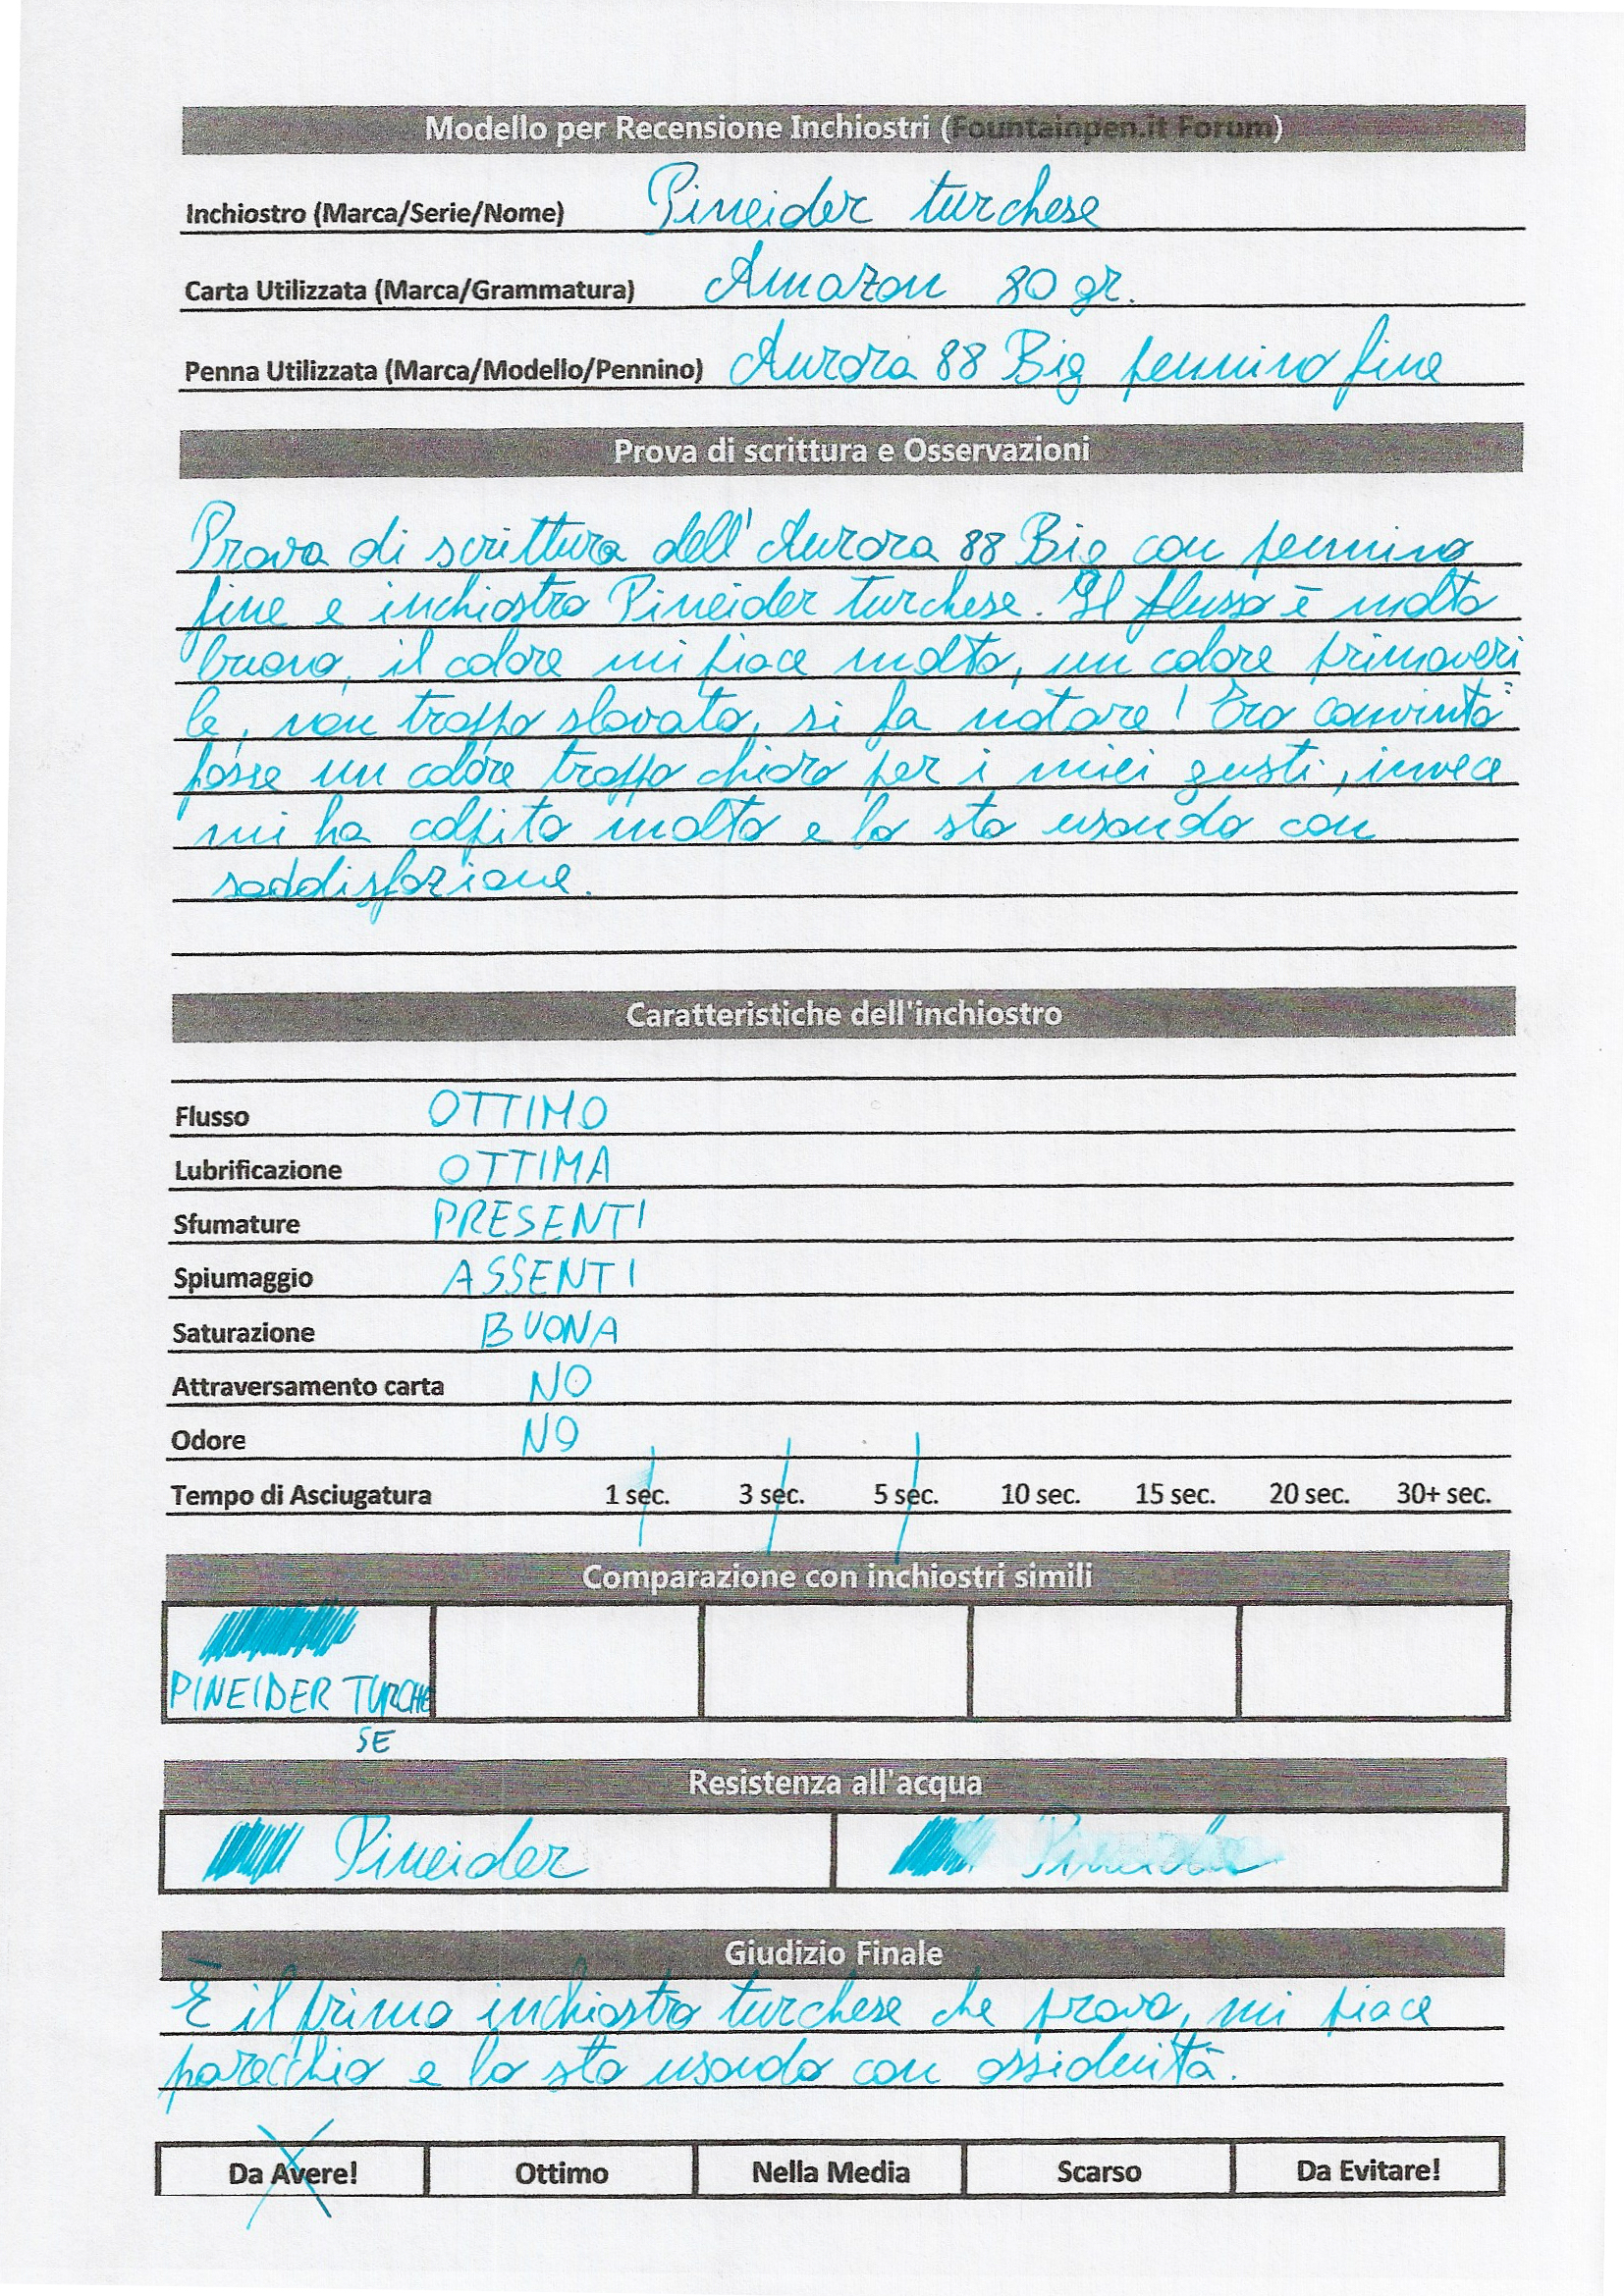 Modello per Recensione Inchiostri (Fountainpen.it Forum)
Inchiostro (Marca/Serie/Nome) Pineider turchese
Carta Utilizzata (Marca/Grammatura) Amazon 80 gr.
Penna Utilizzata (Marca/Modello/Pennino) Aurora 88 Big pennino fine
Prova di scrittura e Osservazioni
Prova di scrittura dell'Aurora 88 Big con pennino
fine e inchiostro Pineider turchese. Il flusso è molto
buono, il colore mi piace molto, un colore primaveri
le, non troppo slavato, si fa notare! Ero convinto
fosse un colore troppo chiaro per i miei gusti, invece
mi ha colpito molto e lo sto usando con
soddisfazione.
Caratteristiche dell'inchiostro
Flusso OTTIMO
Lubrificazione OTTIMA
Sfumature PRESENTI
Spiumaggio ASSENTI
Saturazione BUONA
Attraversamento carta NO
Odore NO
Tempo di Asciugatura 1 sec. 3 sec. 5 sec. 10 sec. 15 sec. 20 sec. 30+ sec.
Comparazione con inchiostri simili
PINEIDER TURCHE
SE
Resistenza all'acqua
Pineider Pineider
Giudizio Finale
È il primo inchiostro turchese che provo, mi piace
parecchio e lo sto usando con assiduità.
Da Avere! Ottimo Nella Media Scarso Da Evitare!